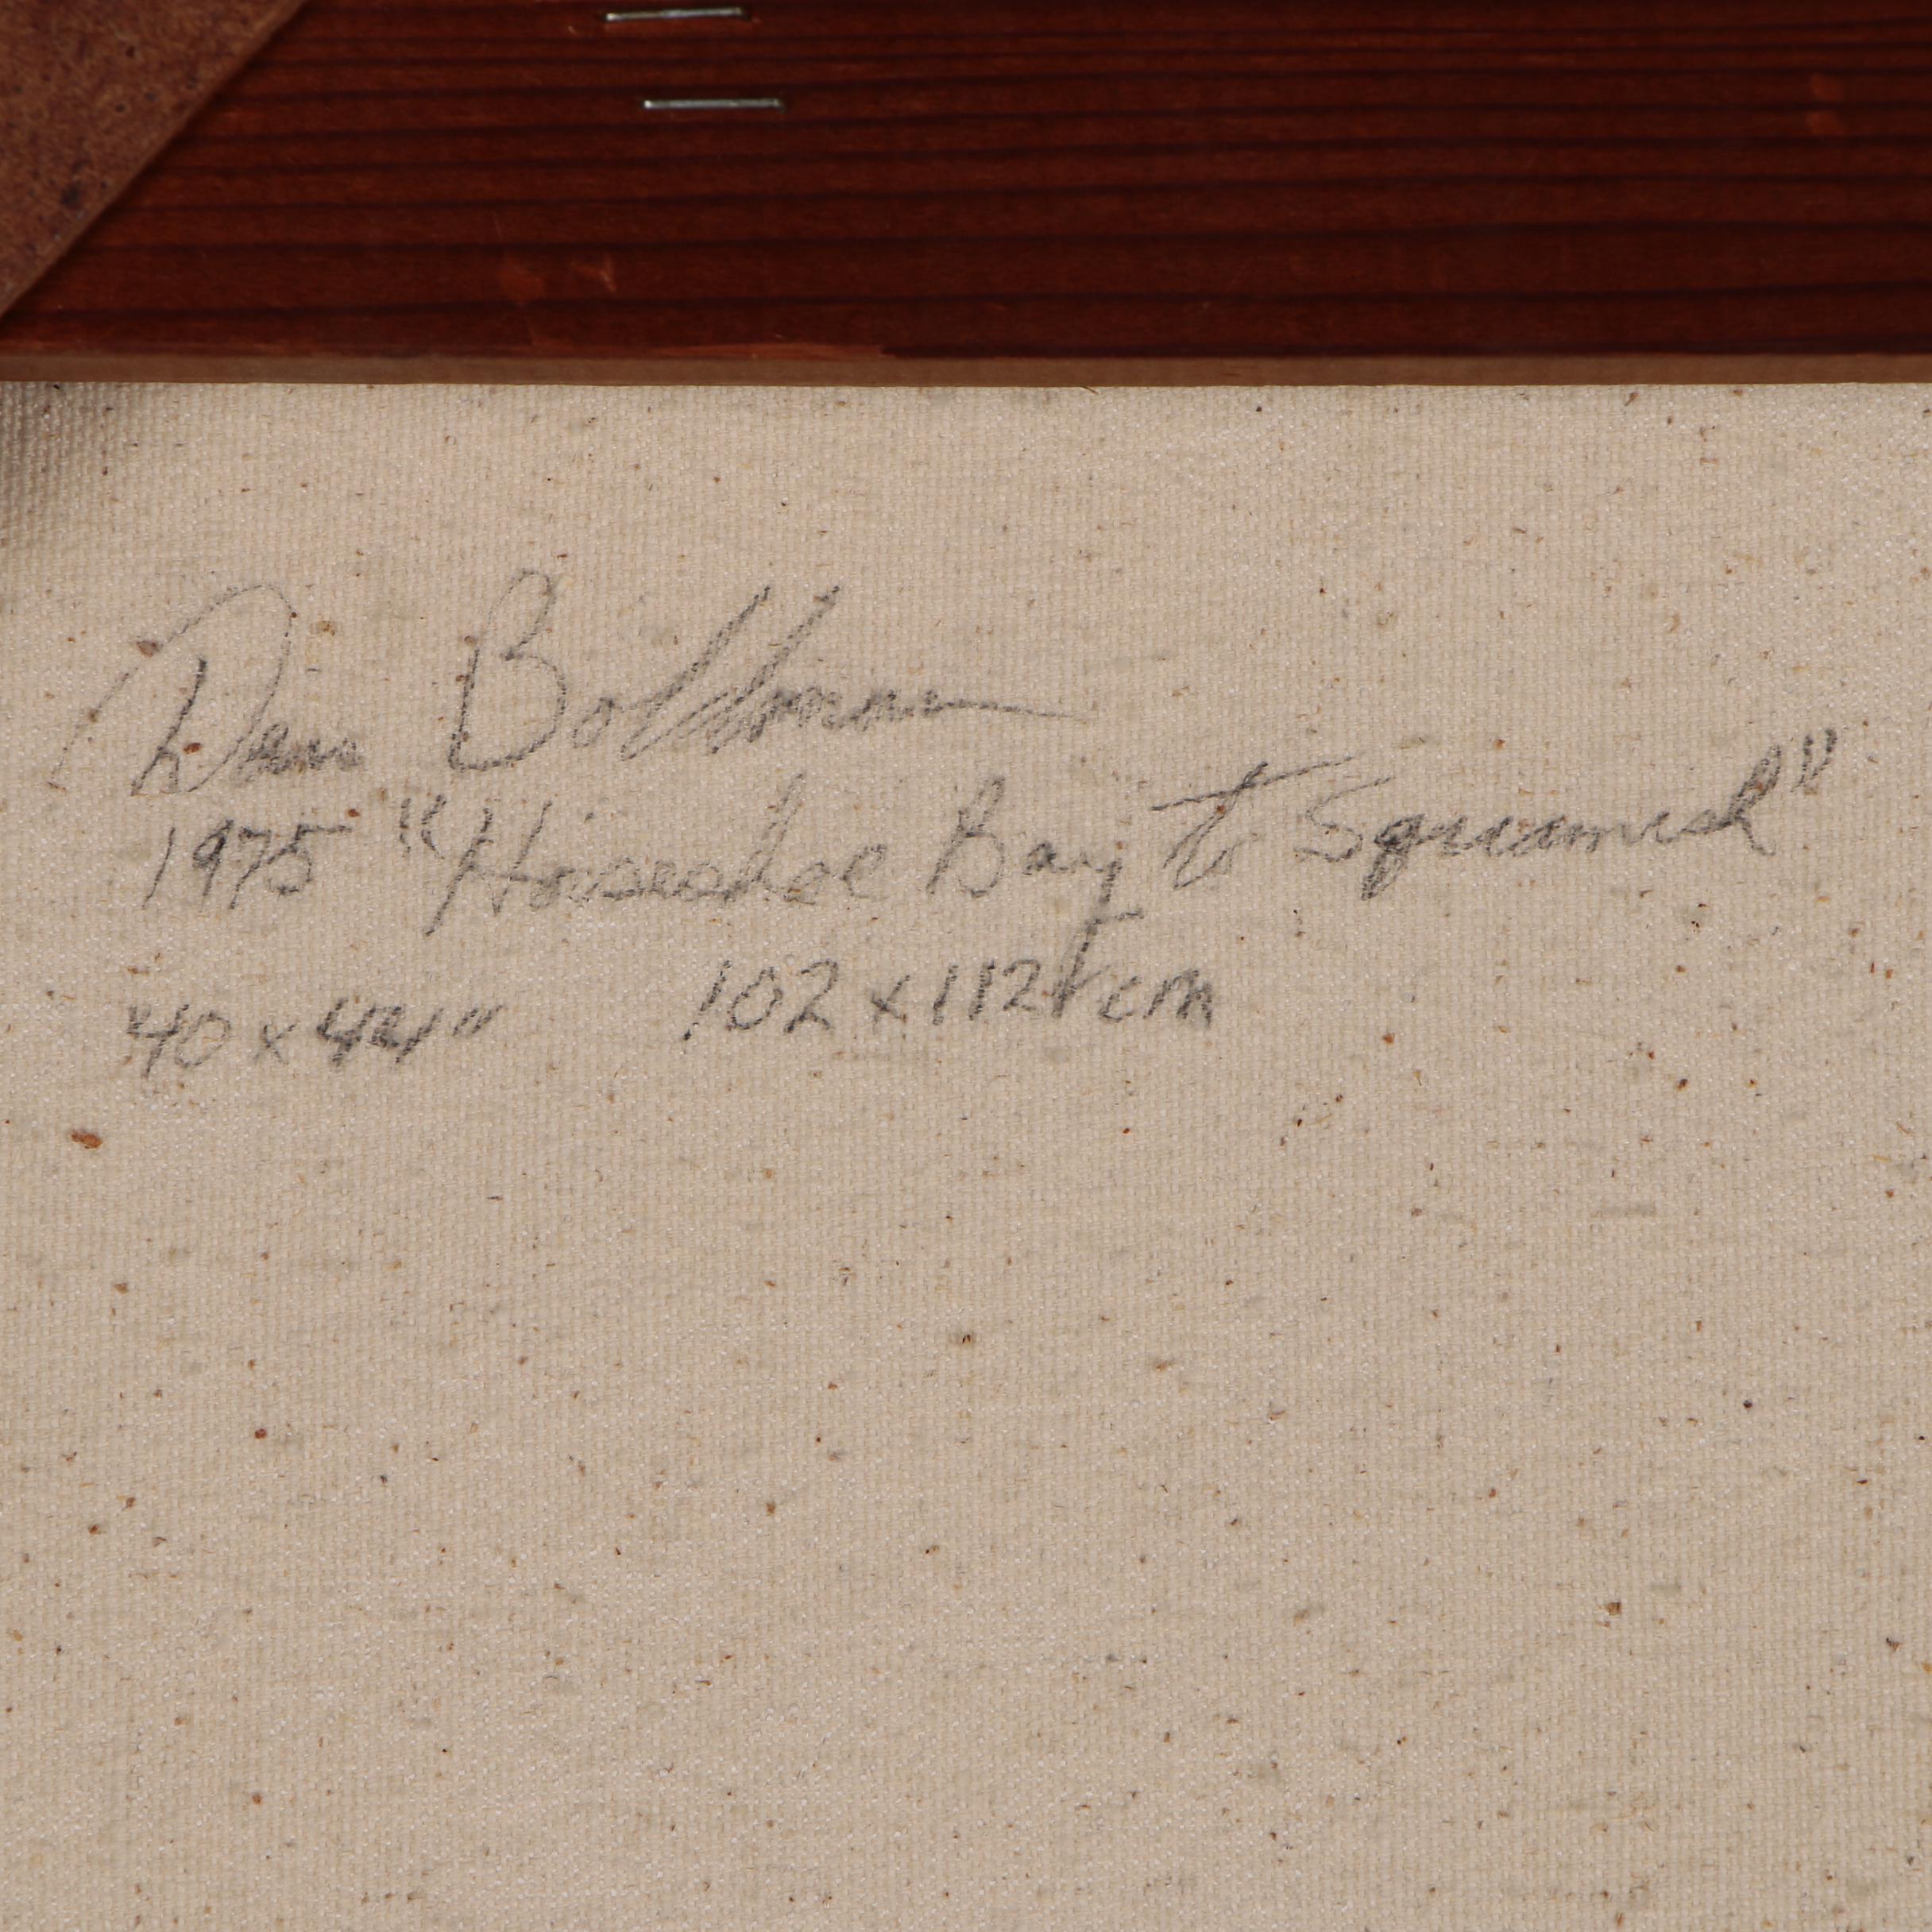 Dan Boldman
1975 "Horseshoe Bay to Squamish"
40 x 44" 102 x 112 cm